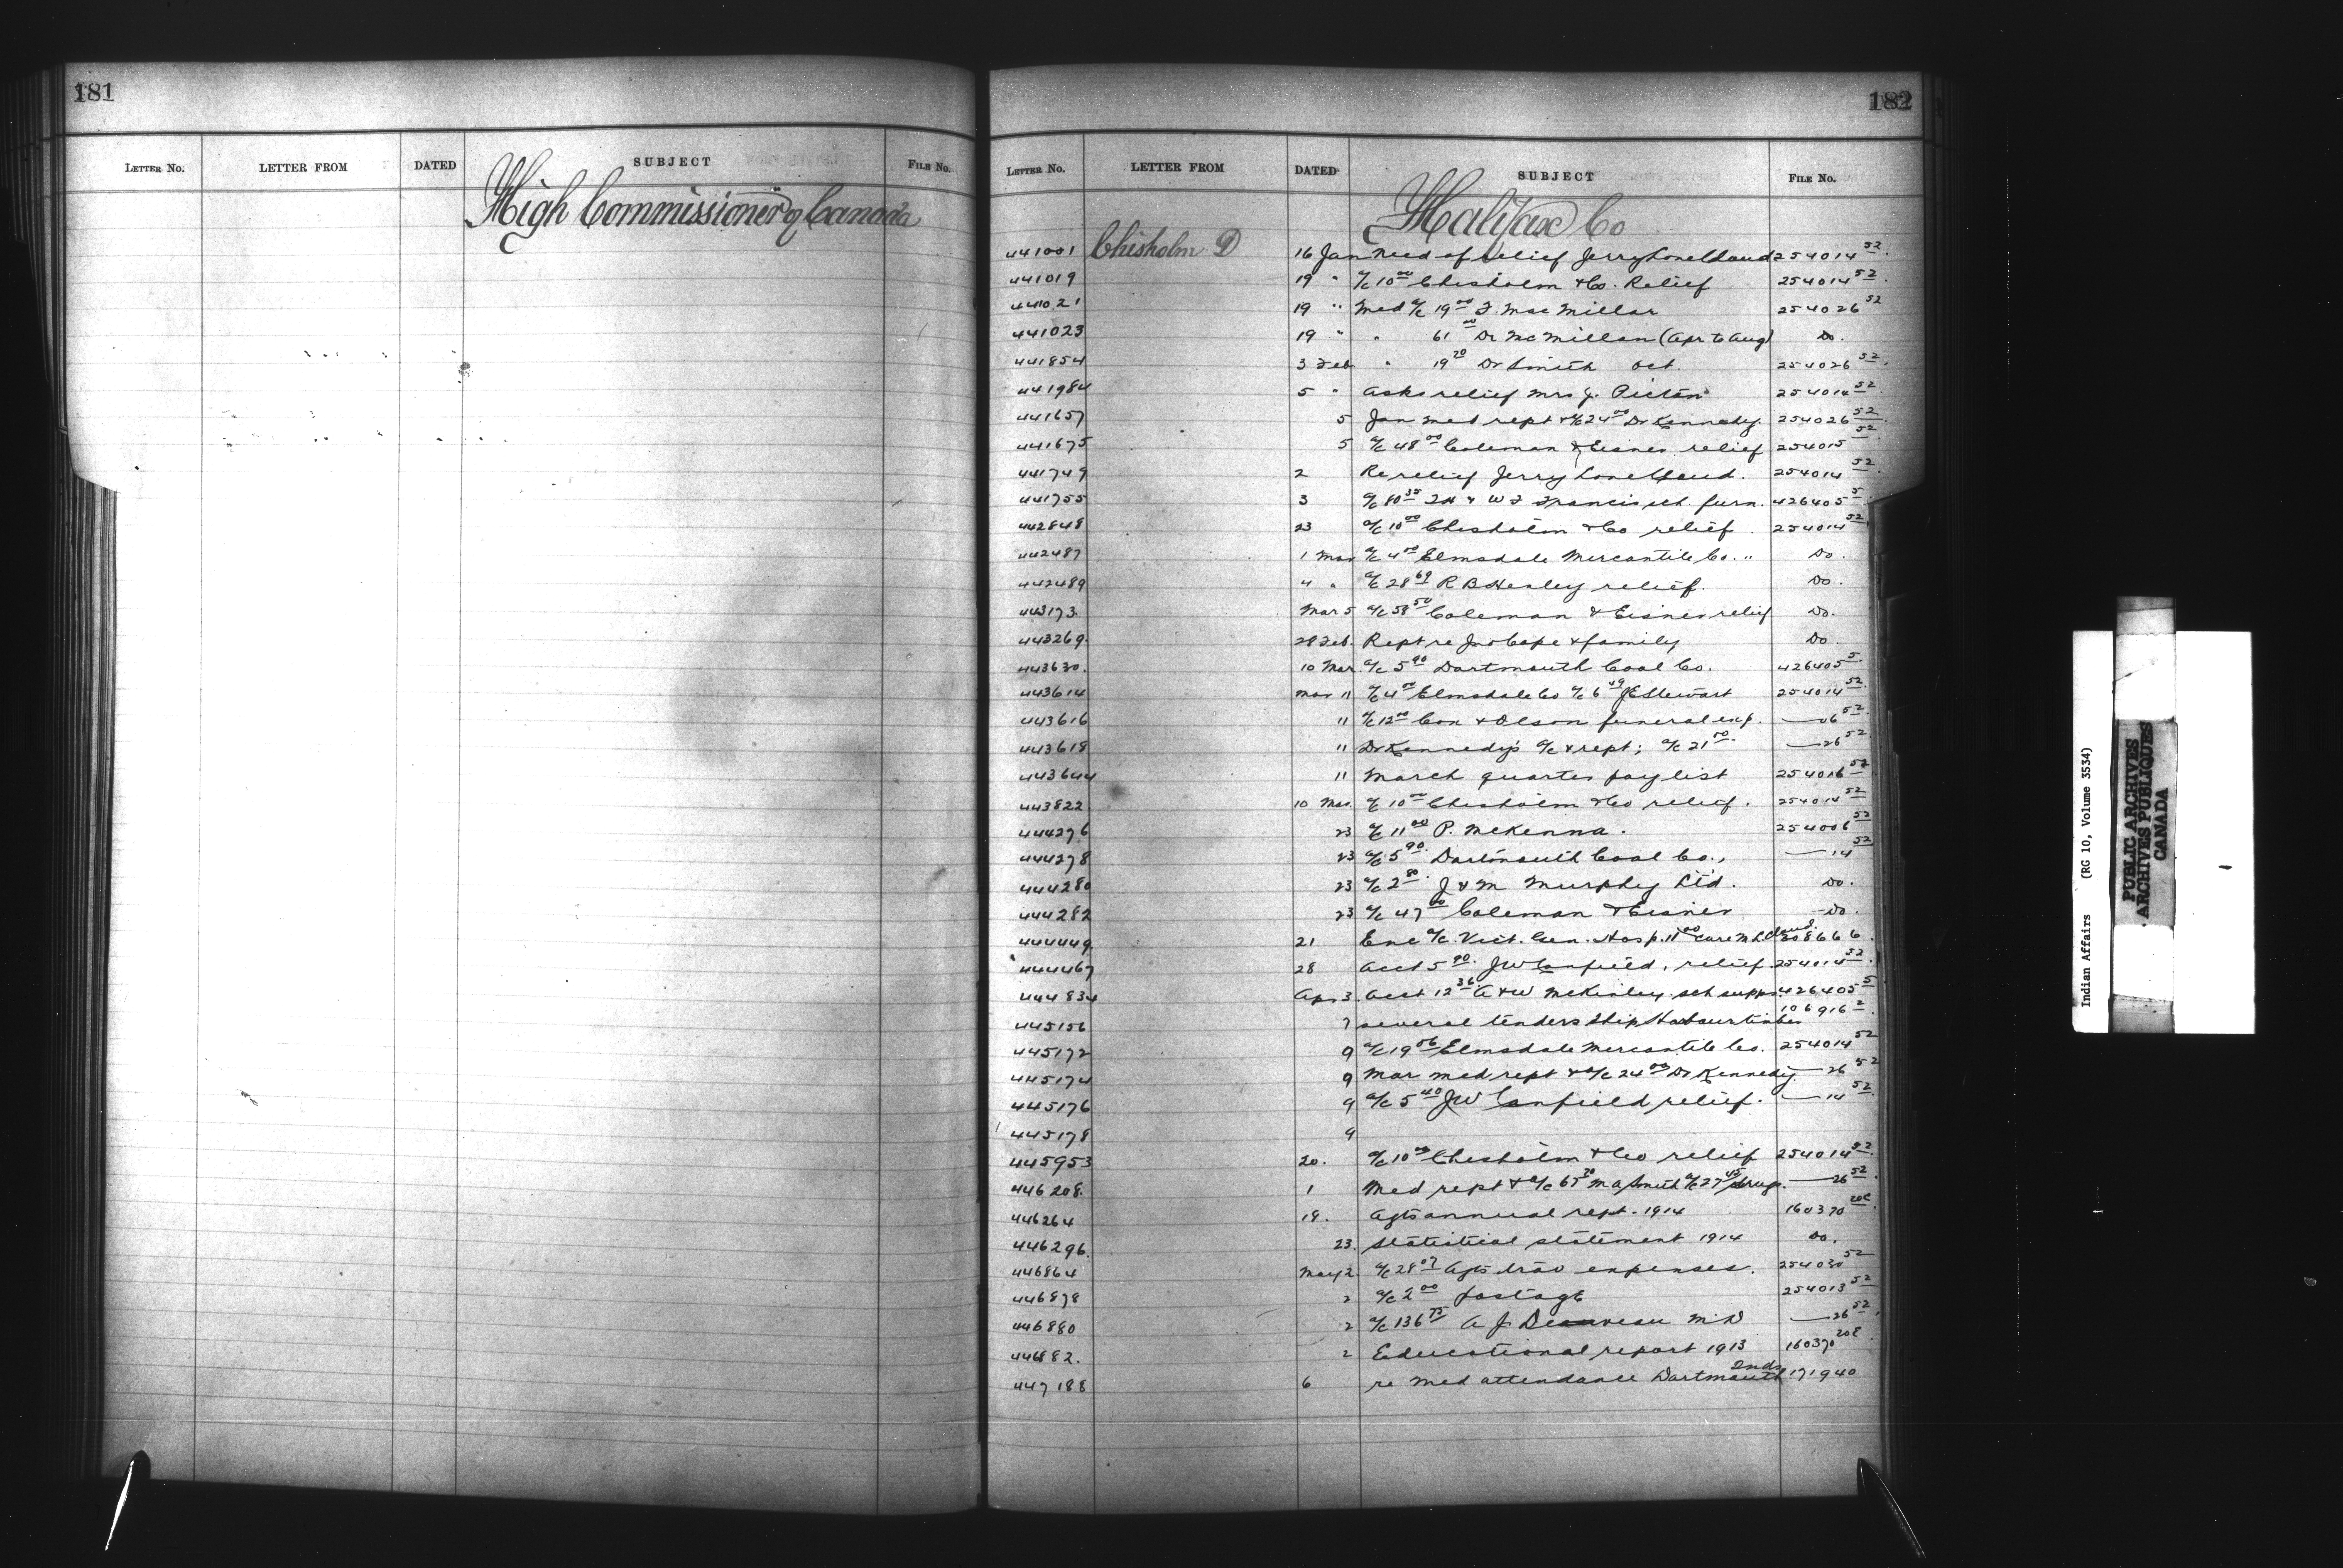 181
LETTER NO. LETTER FROM DATED SUBJECT FILE NO.
High Commissioner of Canada
182
LETTER NO. LETTER FROM DATED SUBJECT FILE NO.
Halifax Co
441001 Chisholm D 16 Jan Need of relief Jerry Lonecloud 254014 52
441019 19 " a/c 10 00 Chisholm & Co. Relief 254014 52
441021 19 " Med a/c 19 00 Mac Millar 254026 52
441023 19 " " 61 00 Dr McMillan (Apr to Aug) Do.
441854 3 Feb " 19 20 Dr Smith Oct. 254026 52
441984 5 " Asks relief Mrs J. Picton 254014 52
441657 5 Jan med rept & a/c 24 00 Dr Kennedy. 254026 52
441675 5 a/c 48 00 Coleman & Eisner relief 254015 52
441749 2 Re relief Jerry Lonecloud. 254014 52
441755 3 a/c 80 35 & W F Francis sch. furn. 426405 5
442848 23 a/c 10 00 Chisholm & Co relief. 254014 52
442487 1 Mar a/c 4 00 Elmsdale Mercantile Co. " Do.
442489 4 " a/c 28 69 R B Henley relief. Do.
443173. Mar 5 a/c 58 50 Coleman & Eisner relief Do.
443269. 28 Feb. Rept re Jno Cope & family Do
443630. 10 Mar. a/c 5 90 Dartmouth Coal Co. 426405 5
443614 Mar 11 a/c 4 00 Elmsdale Co a/c 6 49 J E Stewart 254014 52
443616 11 a/c 12 00 & Olson funeral exp. — 06 52
443618 11 Dr Kennedy's a/c & rept; a/c 21 50 — 26 52
443644 11 March quarter pay list 254016 52
443822 10 Mar. a/c 10 00 Chisholm & Co relief. 254014 52
444276 23 a/c 11 00 P. McKenna. 254006 52
444278 23 a/c 5 90 Dartmouth Coal Co., — 14 52
444280 23 a/c 2 80 J & M Murphy Ltd. Do.
444282 23 a/c 47 00 Coleman & Eisner — Do.
444449 21 Enc a/c Vict. Gen. Hosp. 11 00 care M L Cloud. 308666
444467 28 Acct 5 90 J W Canfield, relief 254014 52
444834 Apr 3. Acct 12 36 A & W McKinley sch supp. 426405 5
445156 7 several tenders Ship Harbour timber 106916 2
445172 9 a/c 19 06 Elmsdale Mercantile Co. 254014 52
445174 9 Mar med rept & a/c 24 00 Dr Kennedy — 26 52
445176 9 a/c 5 40 J W Canfield relief. — 14 52
445178 9
445953 20. a/c 10 00 Chisholm & Co relief 254014 52
446208. 1 Med rept & a/c 65 20 M A Smith a/c 27 45 drugs. — 26 52
446264 18. Agts annual rept. 1914 160370 20C
446296. 23. Statistical statement 1914 Do.
446864 May 2. a/c 28 07 Agts trav expenses. 254030 52
446878 2 a/c 2 00 postage 254013 52
446880 2 a/c 136 75 A J M D — 26 52
446882. 2 Educational report 1913 160370
447188 6 re Med attendance Dartmouth Inds 171940
Indian Affairs (RG 10, Volume 3534)
PUBLIC ARCHIVES
ARCHIVES PUBLIQUES
CANADA